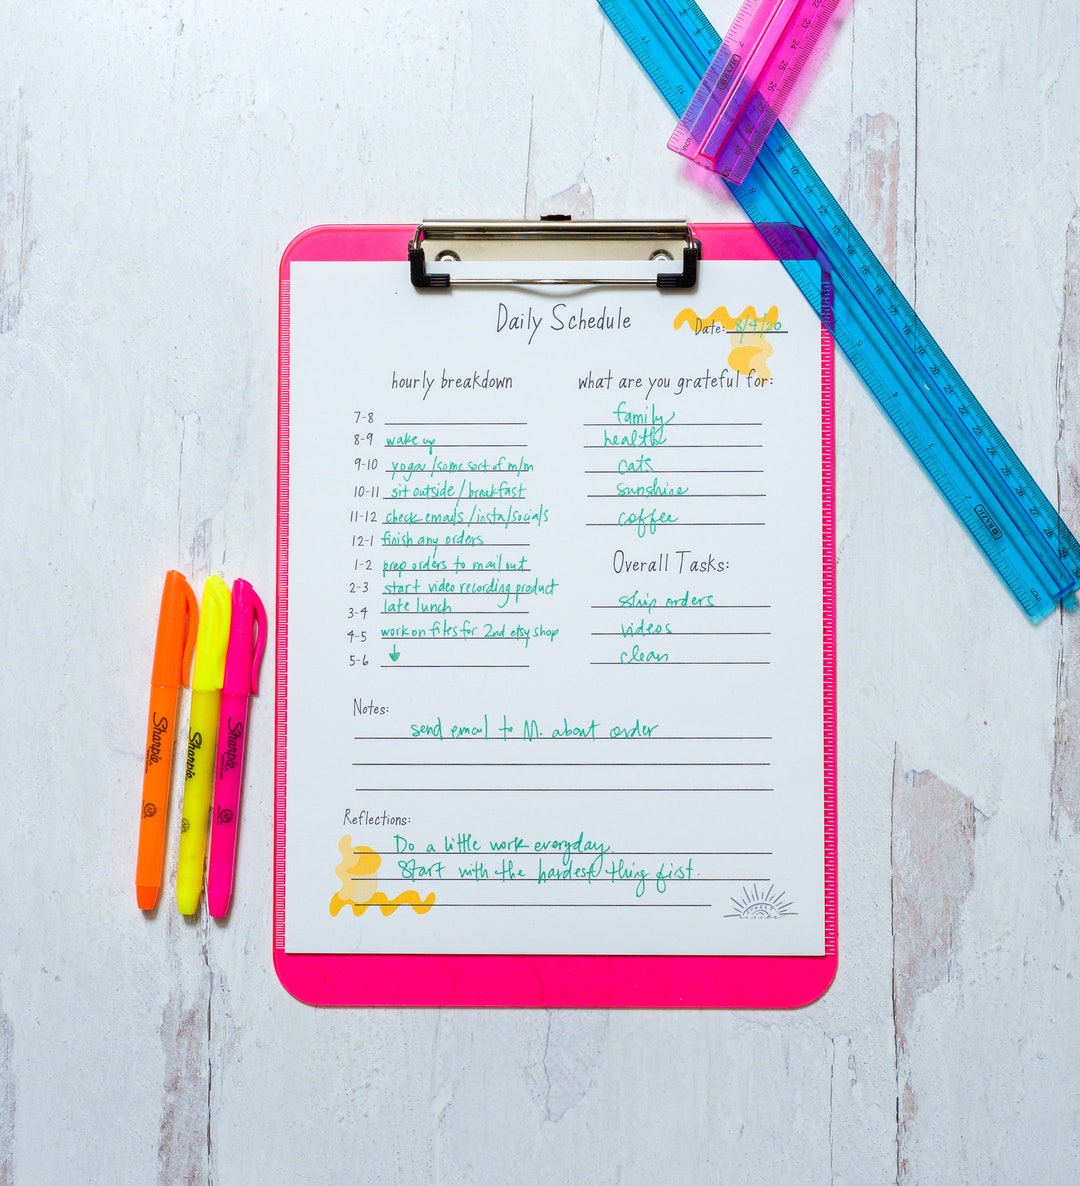 Daily Schedule
Date: 8/4/20
hourly breakdown
7-8
8-9 wake up
9-10 yoga/some sort of m/m
10-11 sit outside/breakfast
11-12 check emails/insta/socials
12-1 finish any orders
1-2 prep orders to mail out
2-3 start video recording product
3-4 late lunch
4-5 work on files for 2nd etsy shop
5-6 ↓
what are you grateful for:
family
health
cats
sunshine
coffee
Overall Tasks:
ship orders
videos
clean
Notes:
send email to M. about order
Reflections:
Do a little work everyday.
Start with the hardest thing first.
Sharpie
Sharpie
Sharpie